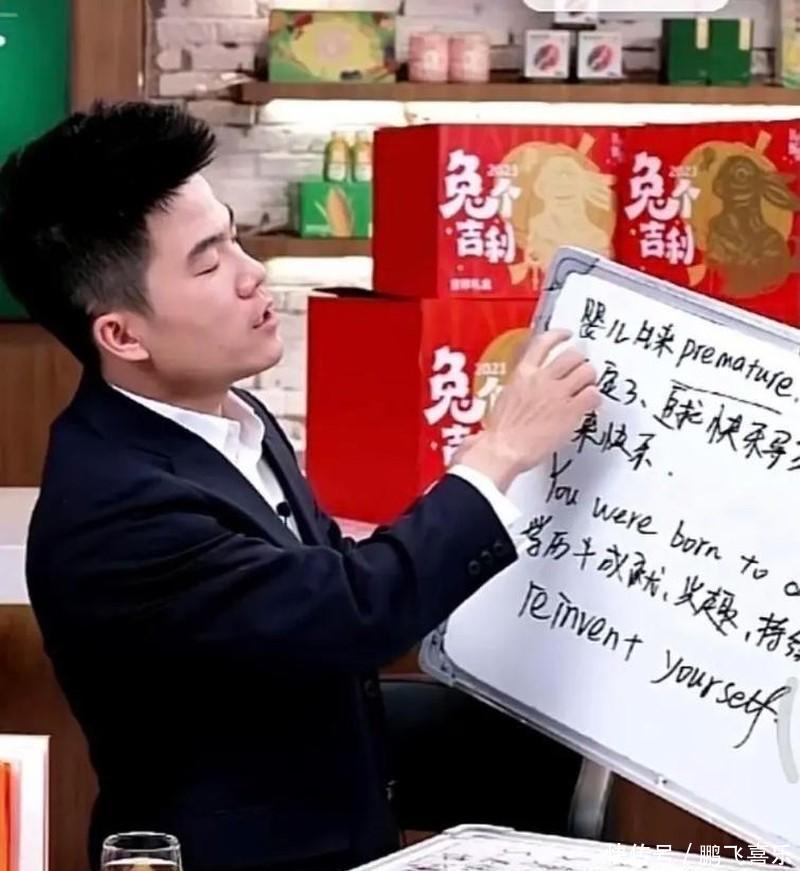 2023
兔个
吉利
2023
兔个
吉利
2023
兔个
吉
婴儿 premature.
快乐
来快乐.
You were born to
学历 成就、兴趣,持续
reinvent yourself.
鹏飞喜乐